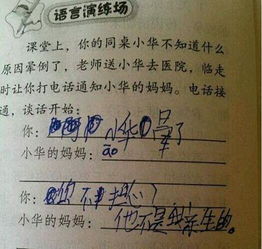 语言演练场
课堂上，你的同桌小华不知道什么
原因晕倒了，老师送小华去医院，临走
时让你打电话通知小华的妈妈。电话接
通，谈话开始：
你：小华晕了
小华的妈妈：āo
你：不担心？
小华的妈妈：他不是我亲生的。